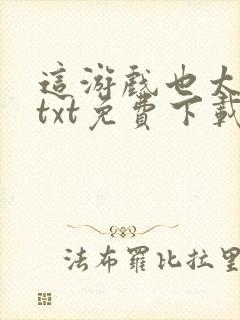 這游戲也太
txt免費下載
法布羅比拉里